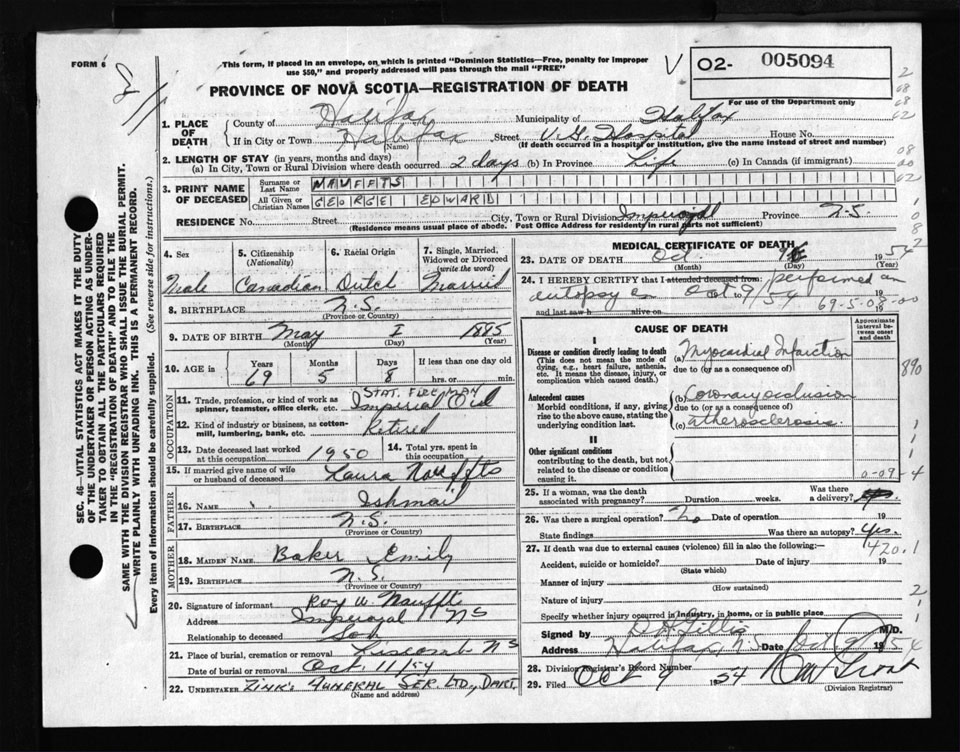 FORM 6
This form, if placed in an envelope, on which is printed "Dominion Statistics—Free, penalty for improper
use $50," and properly addressed will pass through the mail "FREE"
V O2- 005094
For use of the Department only
PROVINCE OF NOVA SCOTIA—REGISTRATION OF DEATH
1. PLACE OF DEATH
County of Halifax Municipality of Halifax
If in City or Town Halifax Street V.G. Hospital House No.
(Name) (If death occurred in a hospital or institution, give the name instead of street and number)
2. LENGTH OF STAY (in years, months and days)
(a) In City, Town or Rural Division where death occurred 2 days (b) In Province Life (c) In Canada (if immigrant)
3. PRINT NAME OF DECEASED
Surname or Last Name NAUFFTS
All Given or Christian Names GEORGE EDWARD
RESIDENCE No. Street City, Town or Rural Division Imperoyal Province N.S.
(Residence means usual place of abode. Post Office Address for residents in rural parts not sufficient)
4. Sex Male
5. Citizenship (Nationality) Canadian
6. Racial Origin Dutch
7. Single, Married, Widowed or Divorced (write the word) Married
8. BIRTHPLACE N.S.
(Province or Country)
9. DATE OF BIRTH May I 1885
(Month) (Day) (Year)
10. AGE in Years 69 Months 5 Days 8 If less than one day old hrs. or min.
OCCUPATION
11. Trade, profession or kind of work as spinner, teamster, office clerk, etc. STAT. FIREMAN Imperial Oil
12. Kind of industry or business, as cotton-mill, lumbering, bank, etc. Retired
13. Date deceased last worked at this occupation 1950
14. Total yrs. spent in this occupation
15. If married give name of wife or husband of deceased Laura Nauffts
FATHER
16. NAME Ishmail
17. BIRTHPLACE N.S.
(Province or Country)
MOTHER
18. MAIDEN NAME Baker Emily
19. BIRTHPLACE N.S.
(Province or Country)
20. Signature of informant Roy W. Nauffts
Address Imperoyal NS
Relationship to deceased Son
21. Place of burial, cremation or removal Liscomb NS
Date of burial or removal Oct. 11/54
22. UNDERTAKER ZINK'S FUNERAL SER. LTD., DART.
(Name and address)
MEDICAL CERTIFICATE OF DEATH
23. DATE OF DEATH Oct. 9 1954
(Month) (Day) (Year)
24. I HEREBY CERTIFY that I attended deceased from: performed an
autopsy on Oct 9/54 69-5-08-00
and last saw h alive on
CAUSE OF DEATH
Approximate interval between onset and death
I
Disease or condition directly leading to death
This does not mean the mode of dying, e.g., heart failure, asthenia, etc. It means the disease, injury, or complication which caused death.
(a) Myocardial Infarction
due to (or as a consequence of)
Antecedent causes
Morbid conditions, if any, giving rise to the above cause, stating the underlying condition last.
(b) Coronary occlusion
due to (or as a consequence of)
(c) atherosclerosis.
II
Other significant conditions
contributing to the death, but not related to the disease or condition causing it.
0-09-4
25. If a woman, was the death associated with pregnancy? Duration weeks. Was there a delivery?
26. Was there a surgical operation? No Date of operation 19
State findings Was there an autopsy? Yes.
420.1
27. If death was due to external causes (violence) fill in also the following:—
Accident, suicide or homicide? Date of injury 19
(State which)
Manner of injury
(How sustained)
Nature of injury
Specify whether injury occurred in industry, in home, or in public place
Signed by D H Gillis M.D.
Address Halifax, N.S. Date Oct 9 1954
28. Division Registrar's Record Number
29. Filed Oct 9 1954
(Division Registrar)
SEC. 46—VITAL STATISTICS ACT MAKES IT THE DUTY
OF THE UNDERTAKER OR PERSON ACTING AS UNDER-
TAKER TO OBTAIN ALL THE PARTICULARS REQUIRED
IN THE "REGISTRATION OF DEATH" AND TO FILE THE
SAME WITH THE DIVISION REGISTRAR WHO SHALL ISSUE THE BURIAL PERMIT.
WRITE PLAINLY WITH UNFADING INK. THIS IS A PERMANENT RECORD.
Every item of information should be carefully supplied. (See reverse side for instructions.)